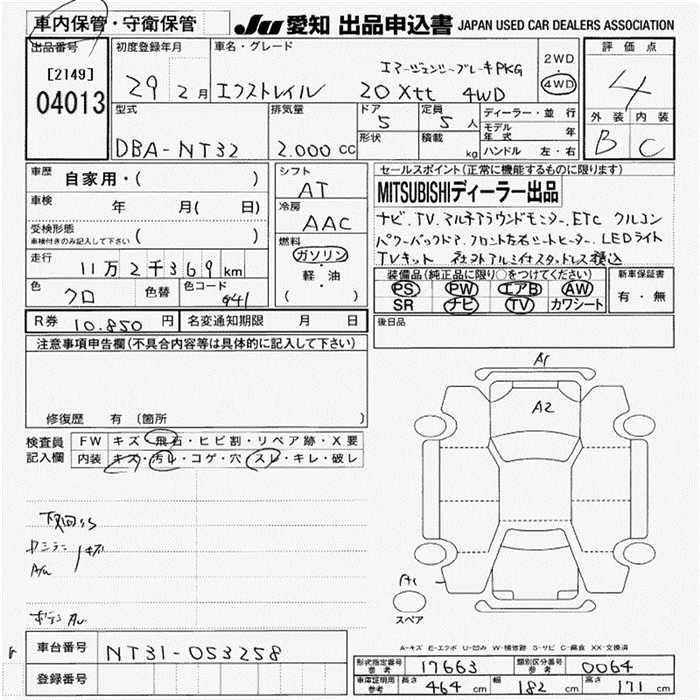 車内保管・守衛保管
JU 愛知 出品申込書 JAPAN USED CAR DEALERS ASSOCIATION
出品番号
[2149]
04013
初度登録年月
29 2月
車名・グレード
エマージェンシーブレーキPKG
エクストレイル 20Xtt 4WD
2WD
4WD
評価点
4
外装 内装
B C
型式
DBA-NT32
排気量
2.000 cc
ドア
5
定員
5 人
形状
積載
kg
ディーラー・並行
モデル年式 年
ハンドル 左・右
車歴
自家用・( )
車検
年 月( 日)
受検形態
車検付きのみ記入して下さい ( )
走行
11万2千369km
色
クロ
色替
色コード
G41
シフト
AT
冷房
AAC
燃料
ガソリン
軽・油
( )
セールスポイント(正常に機能するものに限ります)
MITSUBISHIディーラー出品
ナビ、TV、アルチアラウンドモニター、ETC クルコン
パワーバックドア、フロント左右シートヒーター、LEDライト
TVキット 社外アルミ付スタッドレス積込
装備品(純正品に限り○をつけてください)
PS PW エアB AW
SR ナビ TV カワシート
新車保証書
有・無
R券 10.850 円
名変通知期限 月 日
後日品
注意事項申告欄(不具合内容等は具体的に記入して下さい)
修復歴 有 (箇所 )
検査員
記入欄
FW キズ・飛石・ヒビ割・リペア跡・X要
内装 キズ・汚レ・コゲ・穴・スレ・キレ・破レ
下回りS
キズ
A/u
A1
A2
A1
スペア
A-キズ E-エクボ U-凹み W-補修跡 S-サビ C-腐食 XX-交換済
車台番号 NT31-053258
登録番号
形式指定番号
参考
17663
類別区分番号
参考
0064
車庫証明用
参考
長さ 464 cm 幅 182 cm 高さ 171 cm